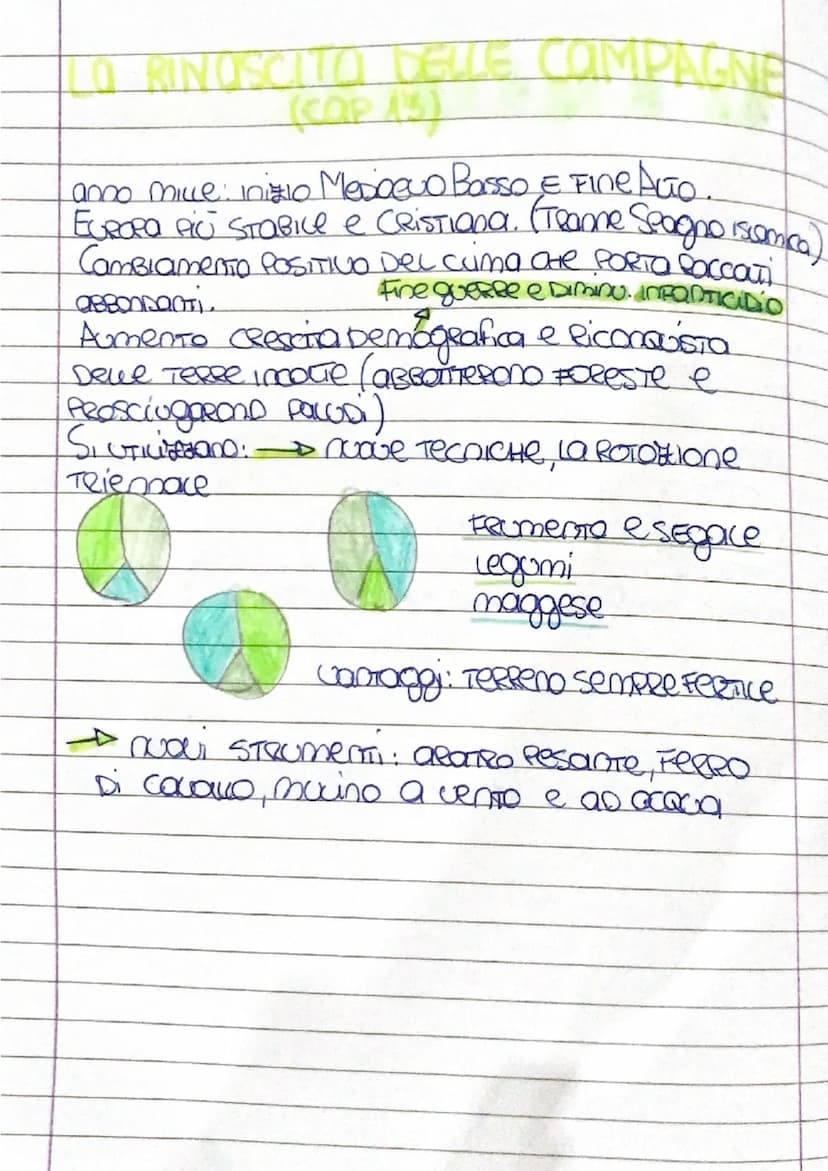 LA RINASCITA DELLE CAMPAGNE
(CAP 13)
anno mille: inizio Medioevo Basso E Fine Alto.
EUROPA PIÙ STABILE e CRISTIANA. (Tranne Spagna islamica)
Cambiamento positivo del clima che porta raccolti
abbondanti.
Fine guerre e diminu. infanticidio
Aumento crescita demografica e riconquista
delle terre incolte (abbatterono foreste e
prosciugarono paludi)
Si utilizzano: → nuove tecniche, la rotazione
triennale
Frumento e segale
Legumi
maggese
Vantaggi: terreno sempre fertile
→ nuovi strumenti: aratro pesante, ferro
di cavallo, mulino a vento e ad acqua